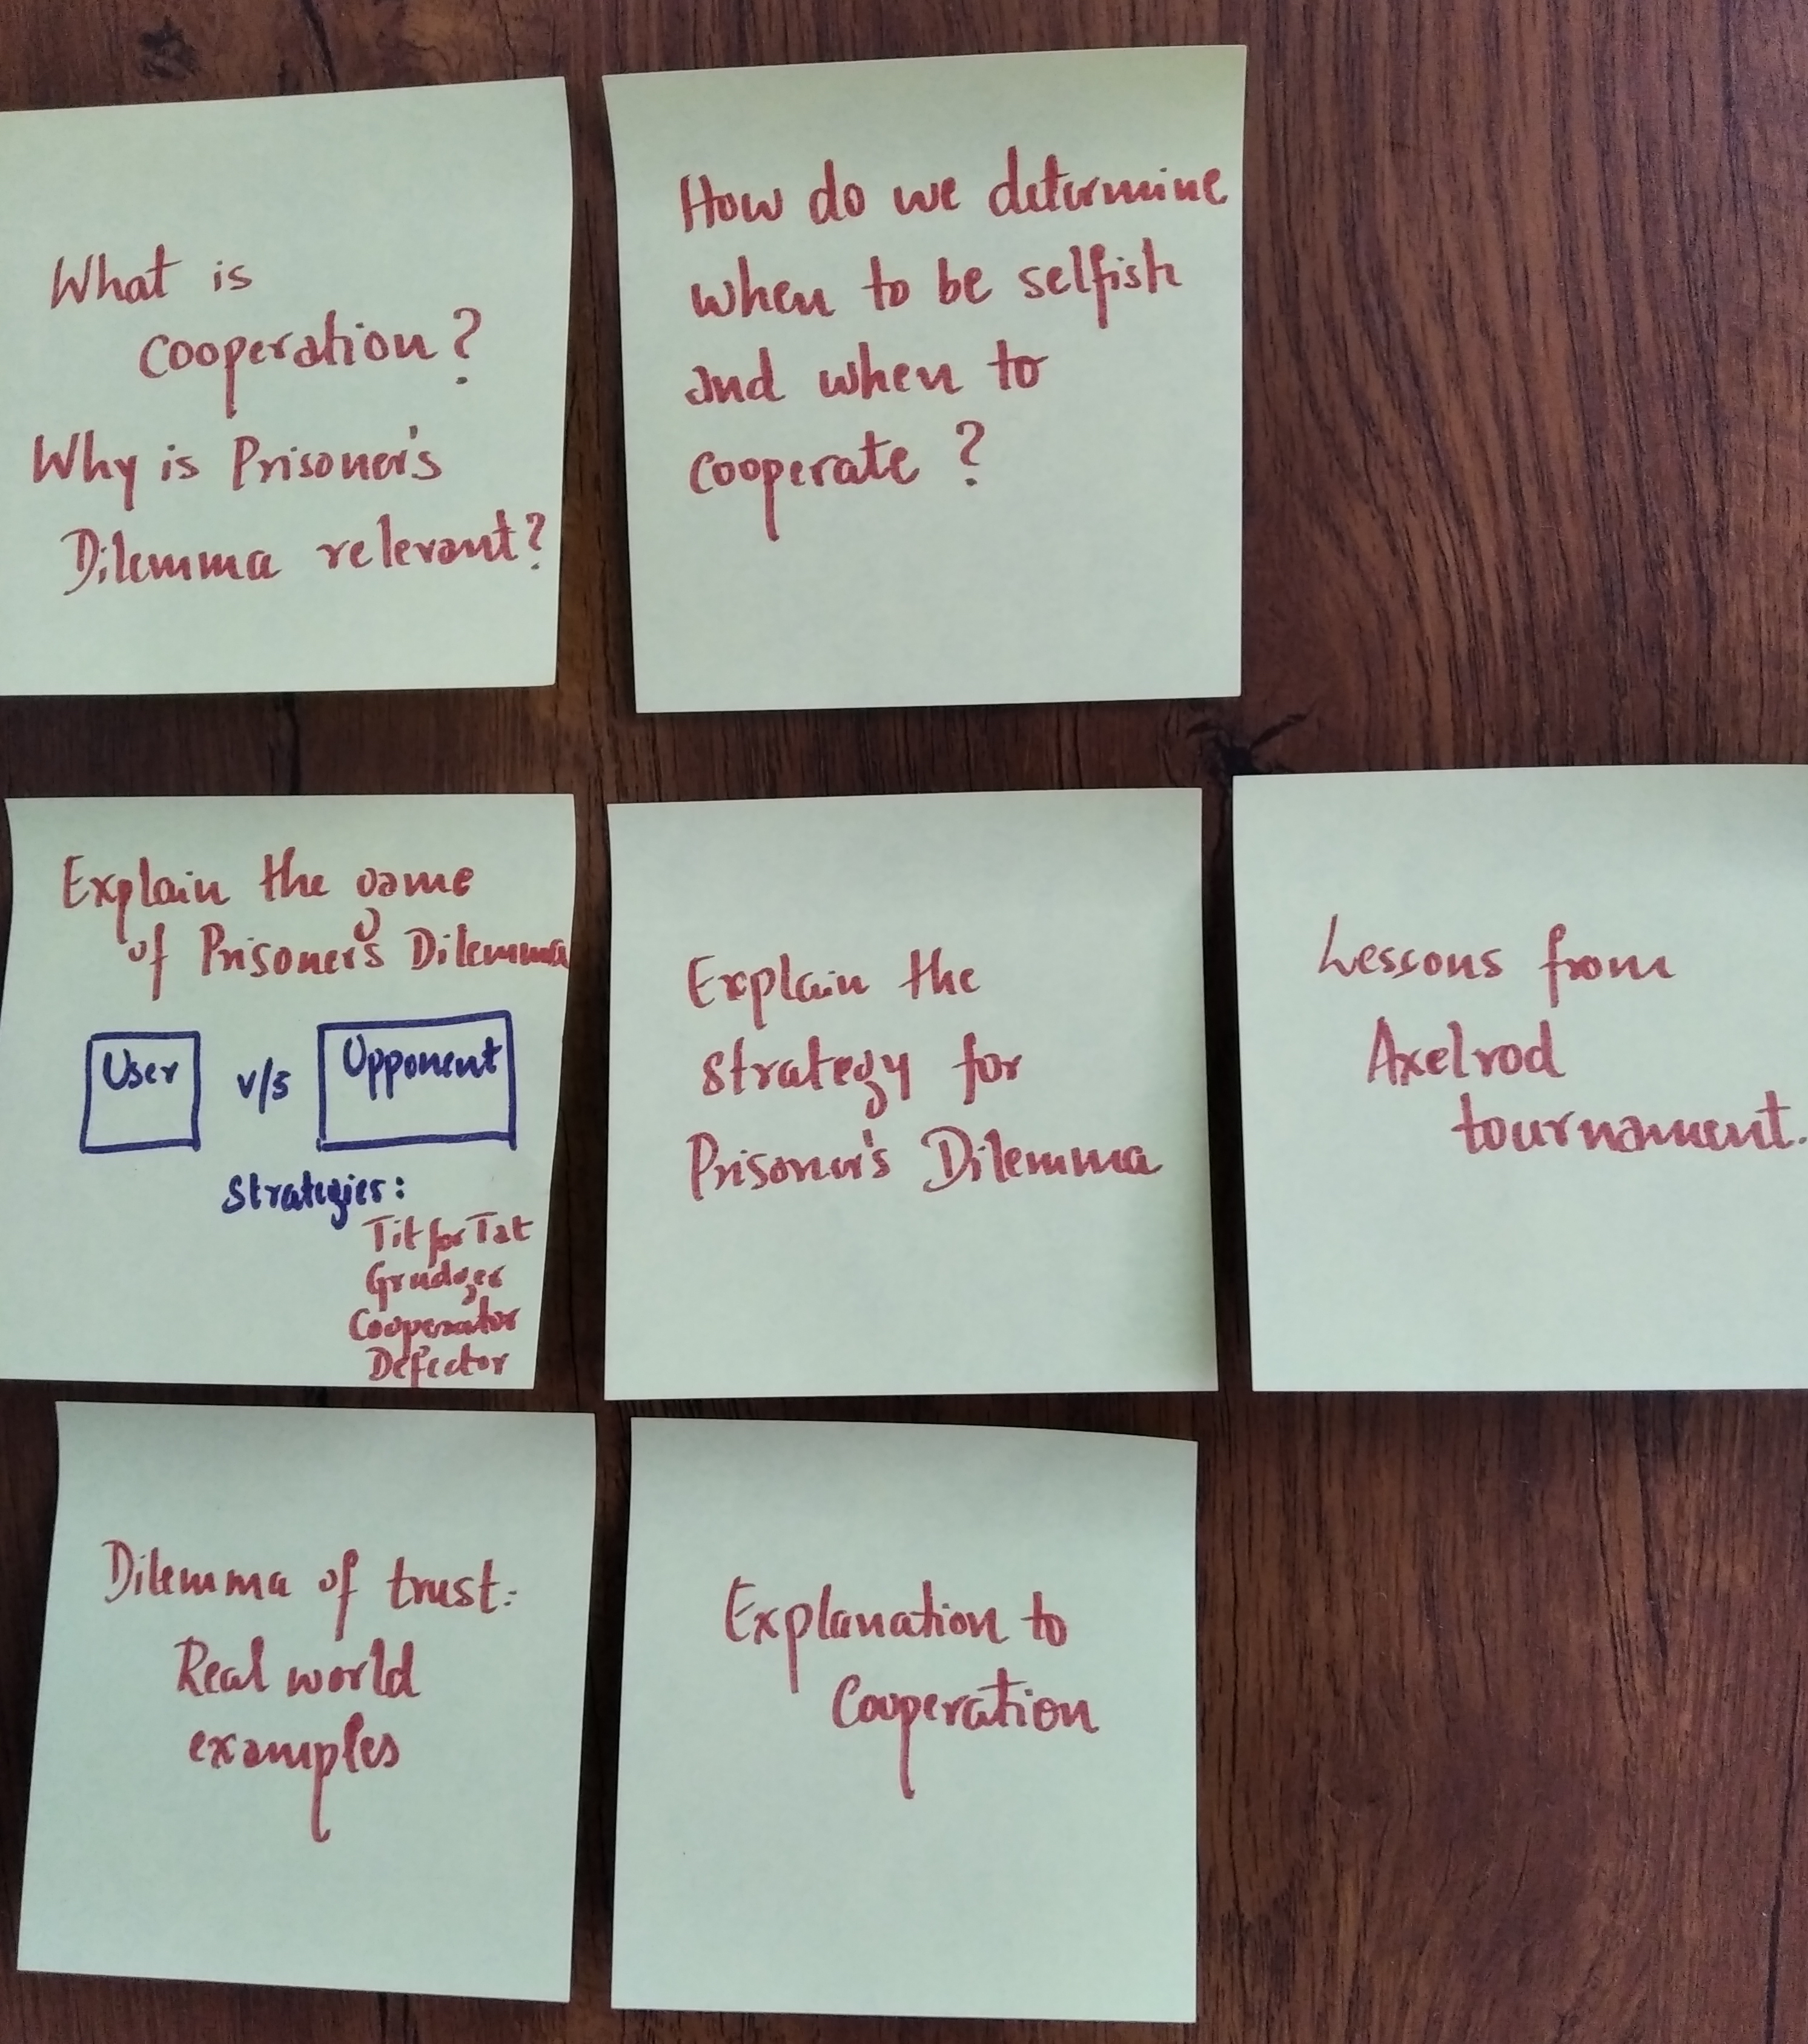 What is
cooperation?
Why is Prisoner's
Dilemma relevant?
How do we determine
when to be selfish
and when to
cooperate ?
Explain the game
of Prisoner's Dilemma
User v/s Opponent
Strategies:
Tit for Tat
Grudger
Cooperator
Defector
Explain the
strategy for
Prisoner's Dilemma
Lessons from
Axelrod
tournament.
Dilemma of trust:
Real world
examples
Explanation to
Cooperation